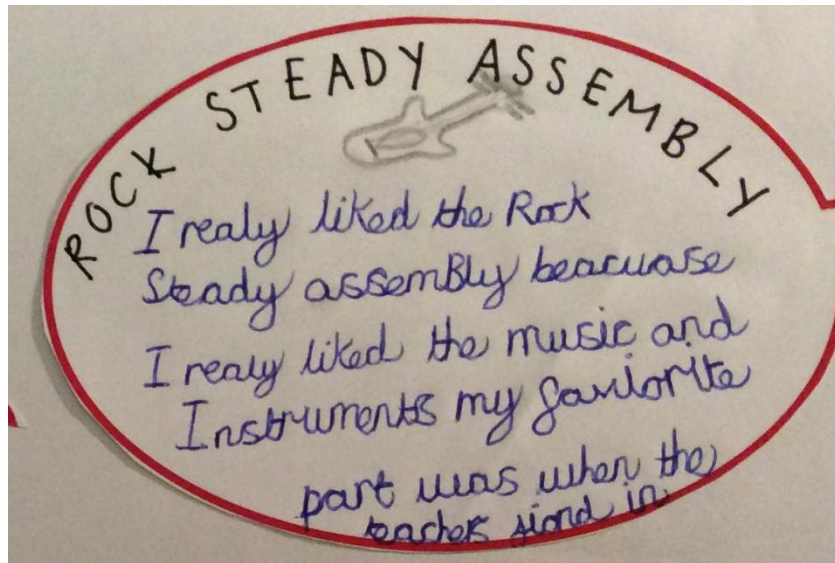 ROCK STEADY ASSEMBLY
I realy liked the Rock
Steady assembly beacuase
I realy liked the music and
Instruments my faviorite
part was when the
teachers jiond in